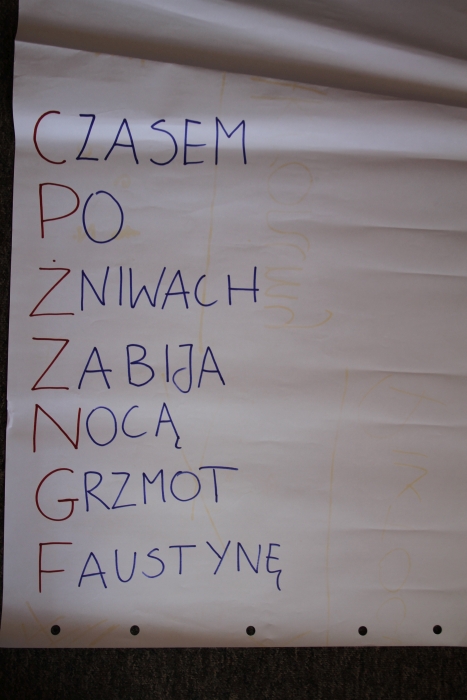 CZASEM
PO
ŻNIWACH
ZABIJA
NOCĄ
GRZMOT
FAUSTYNĘ